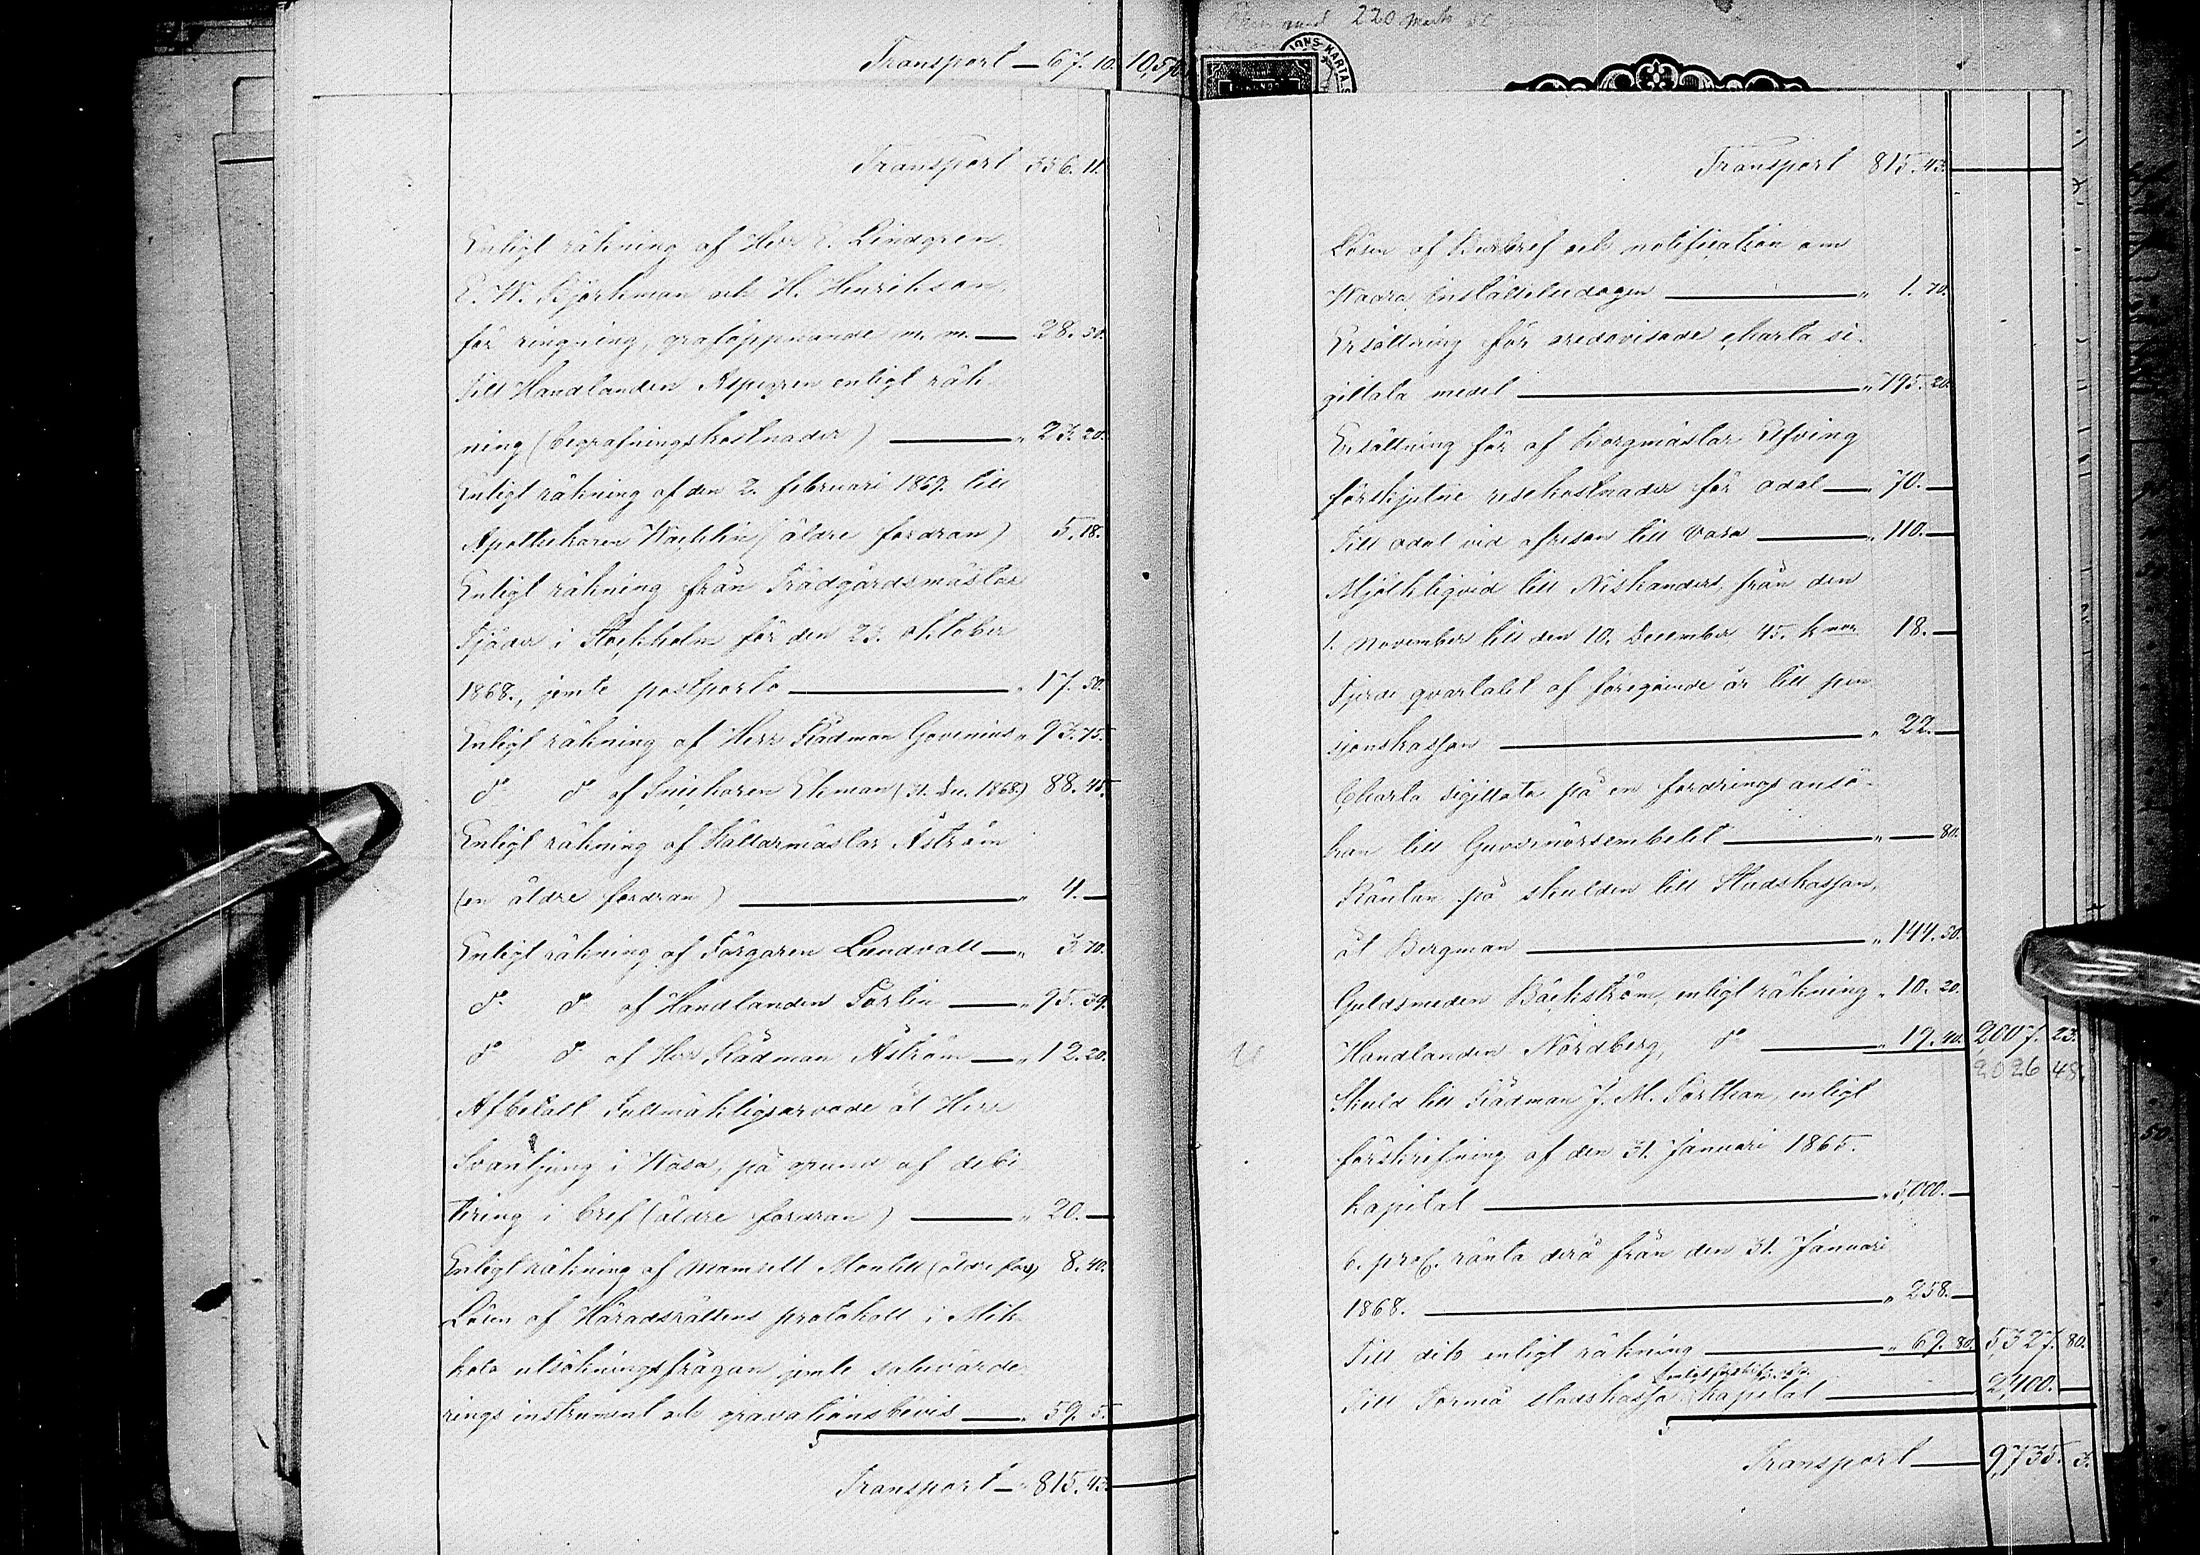 Transport — 67. 10. 10,570.
Transport 356. 11.
Enligt räkning af Herr E. Lindgren,
E. W. Björkman och H. Henrikson,
för ringning, graföppnande m. m. — 28. 50.
Till Handlanden Aspegren enligt räk-
ning (begrafningskostnader) — „ 23. 20.
Enligt räkning af den 2. februari 1869. till
Apothekaren Wacklin (äldre fordran) 5. 18.
Enligt räkning från Trädgårdsmästar
Tjäder i Stockholm för den 23. oktober
1868., jemte postporto — „ 17. 50.
Enligt räkning af Herr Rådman Govenius „ 93. 75.
d:o d:o af Snickaren Ekman (31. Dec. 1868.) 88. 45.
Enligt räkning af Källarmästar Åström
(en äldre fordran) — „ 4. —
Enligt räkning af Färgaren Lundvall — „ 3. 70.
d:o d:o af Handlanden Forlin — „ 95. 39.
d:o d:o af Herr Rådman Åström — „ 12. 20.
Afbetalt Fullmäktigearvode åt Herr
Svanljung i Wasa, på grund af debi-
tering i bref (äldre fordran) — „ 20. —
Enligt räkning af Mamsell Montell (äldre ford.) 8. 40.
Lösen af Häradsrättens protokoll i Mik-
kola utsökningsfrågan jemte salwärde-
rings instrument och gravationsbevis — „ 59. 5.
Transport — „ 815. 43.
220 mark 50
Transport 815. 43.
Lösen af Burbref och notification om
Waara inställelsedagen — „ 1. 70.
Ersättning för oredovisade charta si-
gillata medel — „ 795. 20.
Ersättning för af Borgmästar Elfving
förskjutne resekostnader för Adol — „ 70. —
Till Adol vid afresan till Vasa — „ 110. —
Mjölkliqvid till Niskanders, från den
1. November till den 10. December 45. k:nor 18. —
Fjerde qvartalet af föregående år till pen-
sjonskassan — „ 22. —
Charta sigillata på en fordringsansö-
kan till Guvernörsembetet — „ — 80.
Räntan på skulden till Studskassan,
åt Bergman — „ 144. 50.
Guldsmeden Bäckström, enligt räkning „ 10. 20.
Handlanden Nordberg, d:o — „ 19. 40. 2007. 23.
2026 48.
Skuld till Rådman J. M. Forthan, enligt
förskrifning af den 31. Januari 1865.
kapital — „ 5,000. —
6. proC. ränta derå från den 31. Januari
1868. — „ 258. —
Till dito enligt räkning — „ 69. 80. 5,327. 80.
Till Torneå stadskassa kapital — 2,400. —
Transport — 9,735. 3.